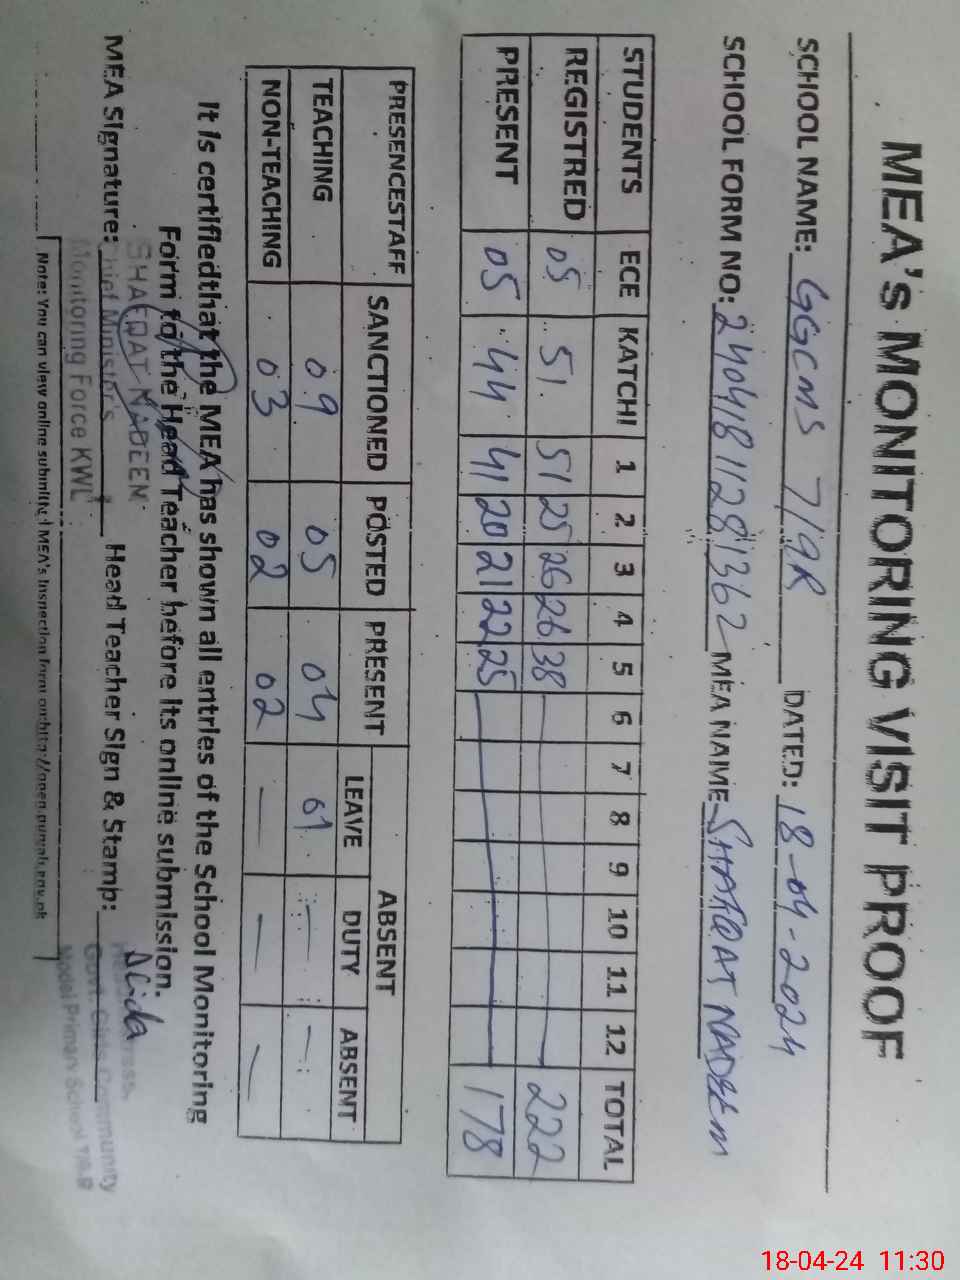 MEA's MONITORING VISIT PROOF
SCHOOL NAME: GGCMS 7/9R DATED: 18-04-2024
SCHOOL FORM NO: 2404811281362 MEA NAME SHAFQAT NADEEM
STUDENTS ECE KATCHI 1 2 3 4 5 6 7 8 9 10 11 12 TOTAL
REGISTRED 05 51 51 25 26 26 38 222
PRESENT 05 44 41 20 21 22 25 178
PRESENCESTAFF SANCTIONED POSTED PRESENT ABSENT
LEAVE DUTY ABSENT
TEACHING 09 05 04 01 — —
NON-TEACHING 03 02 02 — — —
It is certifiedthat the MEA has shown all entries of the School Monitoring
Form to the Head Teacher before its online submission.
SHAFQAT NADEEM
MEA Signature: Chief Minister's Head Teacher Sign & Stamp:
Monitoring Force KWL
Govt. Girls Community
Model Primary School 7/9.R
Note: You can view online submitted MEA's Inspection form on:http://open.punjab.gov.pk
18-04-24 11:30